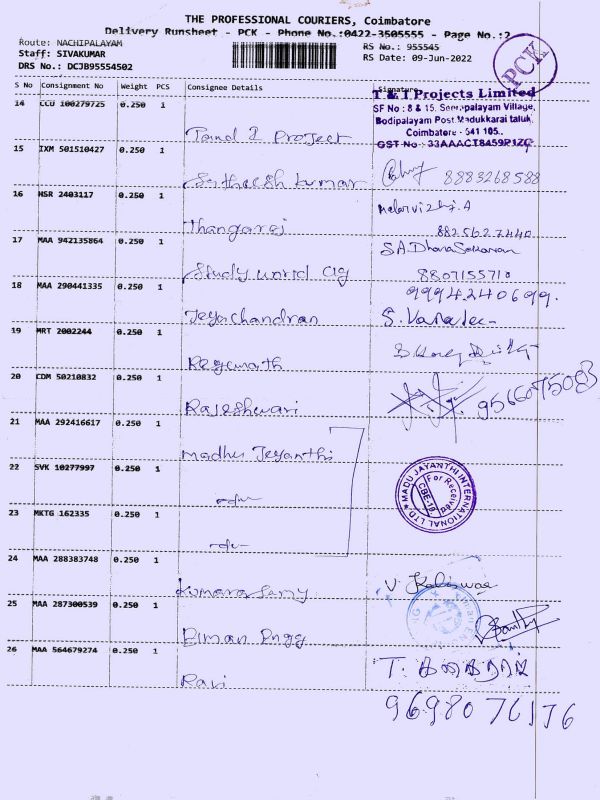 THE PROFESSIONAL COURIERS, Coimbatore
Delivery Runsheet - PCK - Phone No.:0422-3505555 - Page No.:2
Route: NACHIPALAYAM
Staff: SIVAKUMAR
DRS No.: DCJB95554502
RS No.: 955545
RS Date: 09-Jun-2022
PCK
S No Consignment No Weight PCS Consignee Details Signature
14 CCU 100279725 0.250 1
T and I Project
T & I Projects Limited
Bodipalayam Post, Madukkarai taluk,
Coimbatore - 641 105.
GST No : 33AAACT8459P1ZC
15 IXM 501510427 0.250 1
Satheesh kumar
8883268588
16 HSR 2403117 0.250 1
Thangaraj
Malarvizhi.A
8825627440
17 MAA 942135864 0.250 1
Study world Clg
S.A.Dhana Sekaran
8807155710
18 MAA 290441335 0.250 1
Jeyachandran
9994240699.
19 MRT 2002244 0.250 1
Regunath
20 CDM 50210832 0.250 1
Rajeshwari
9566075083
21 MAA 292416617 0.250 1
Madhu Jeyanthi
22 SVK 10277997 0.250 1
MADU JAYANTHI INTERNATIONAL LTD
CBE-18
23 MKTG 162335 0.250 1
24 MAA 288383748 0.250 1
Kumarasamy
25 MAA 287300539 0.250 1
Elman Engg
26 MAA 564679274 0.250 1
Ravi
9698076176